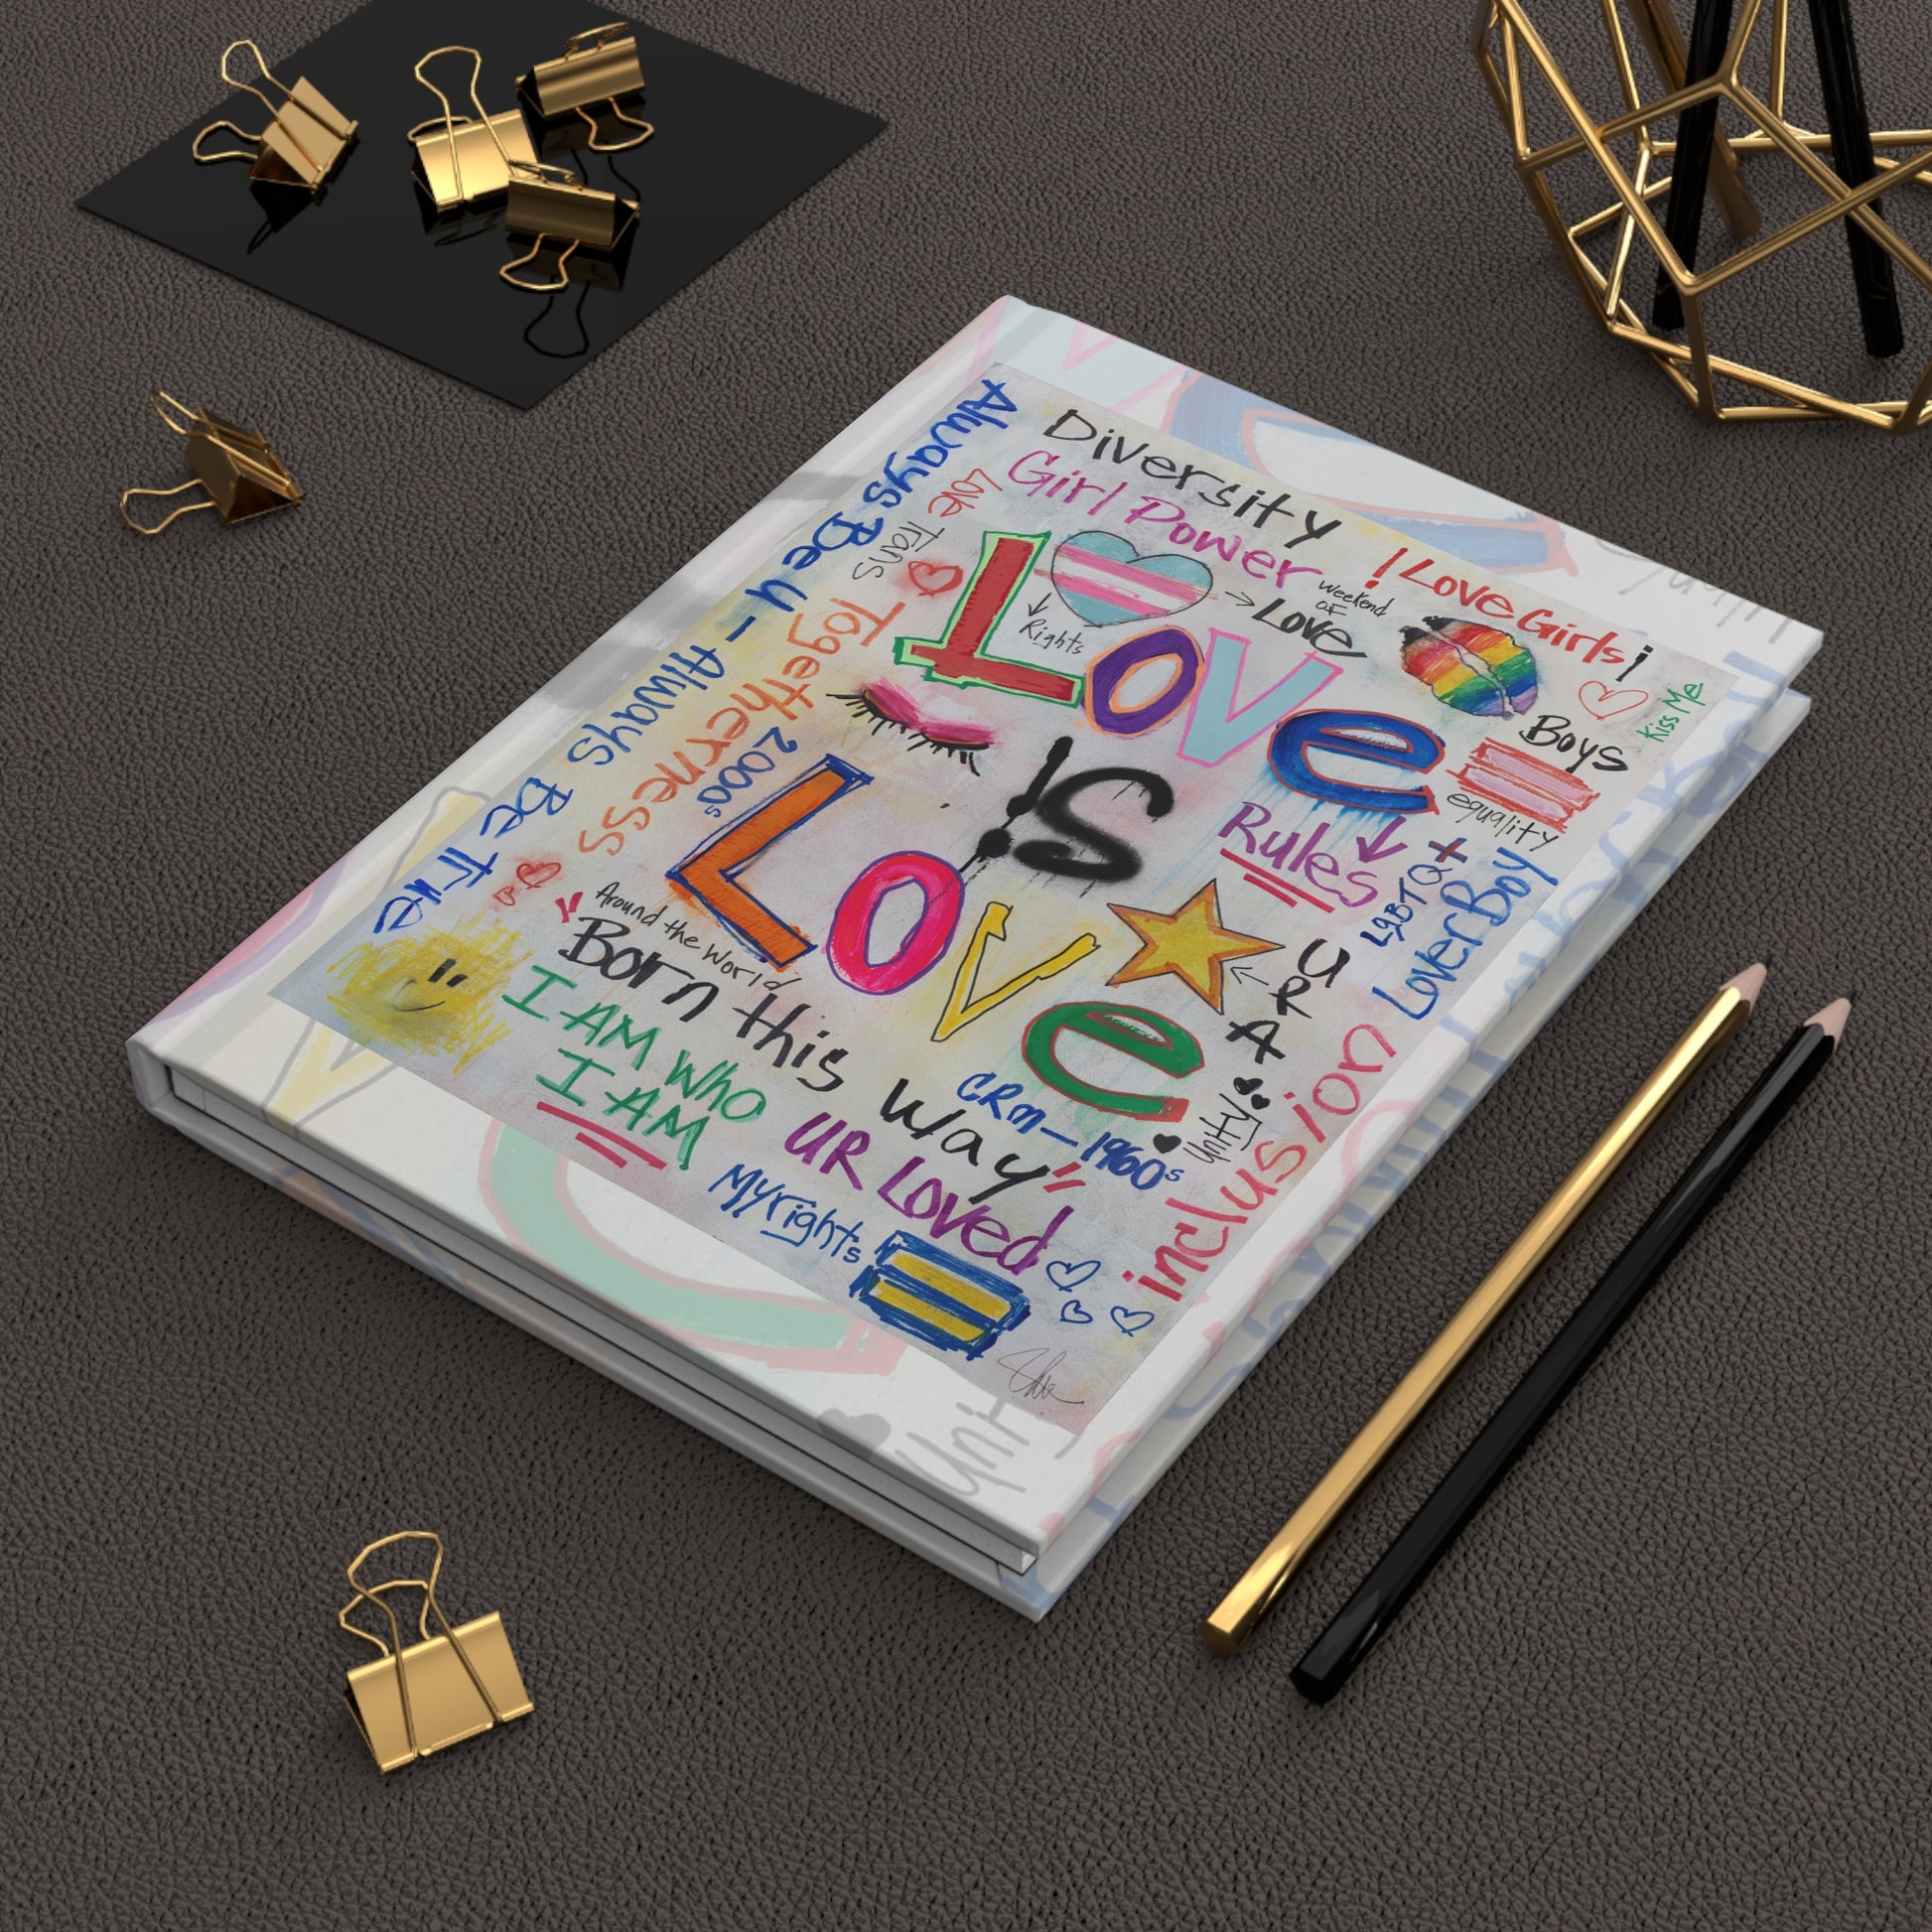 Always Be U - Always Be True
Diversity
Girl Power
! Love Girls !
Love
Trans
Togetherness
2000s
Rights
Weekend
OF
Love
Love
Kiss Me
Boys
equality
IS
Rules
LGBTQ+
LoverBoy
Love
U R A
Around the World
"Born this Way"
I AM Who
I AM
CRM-1960s
Unity
inclusion
UR Loved
My rights
Unity